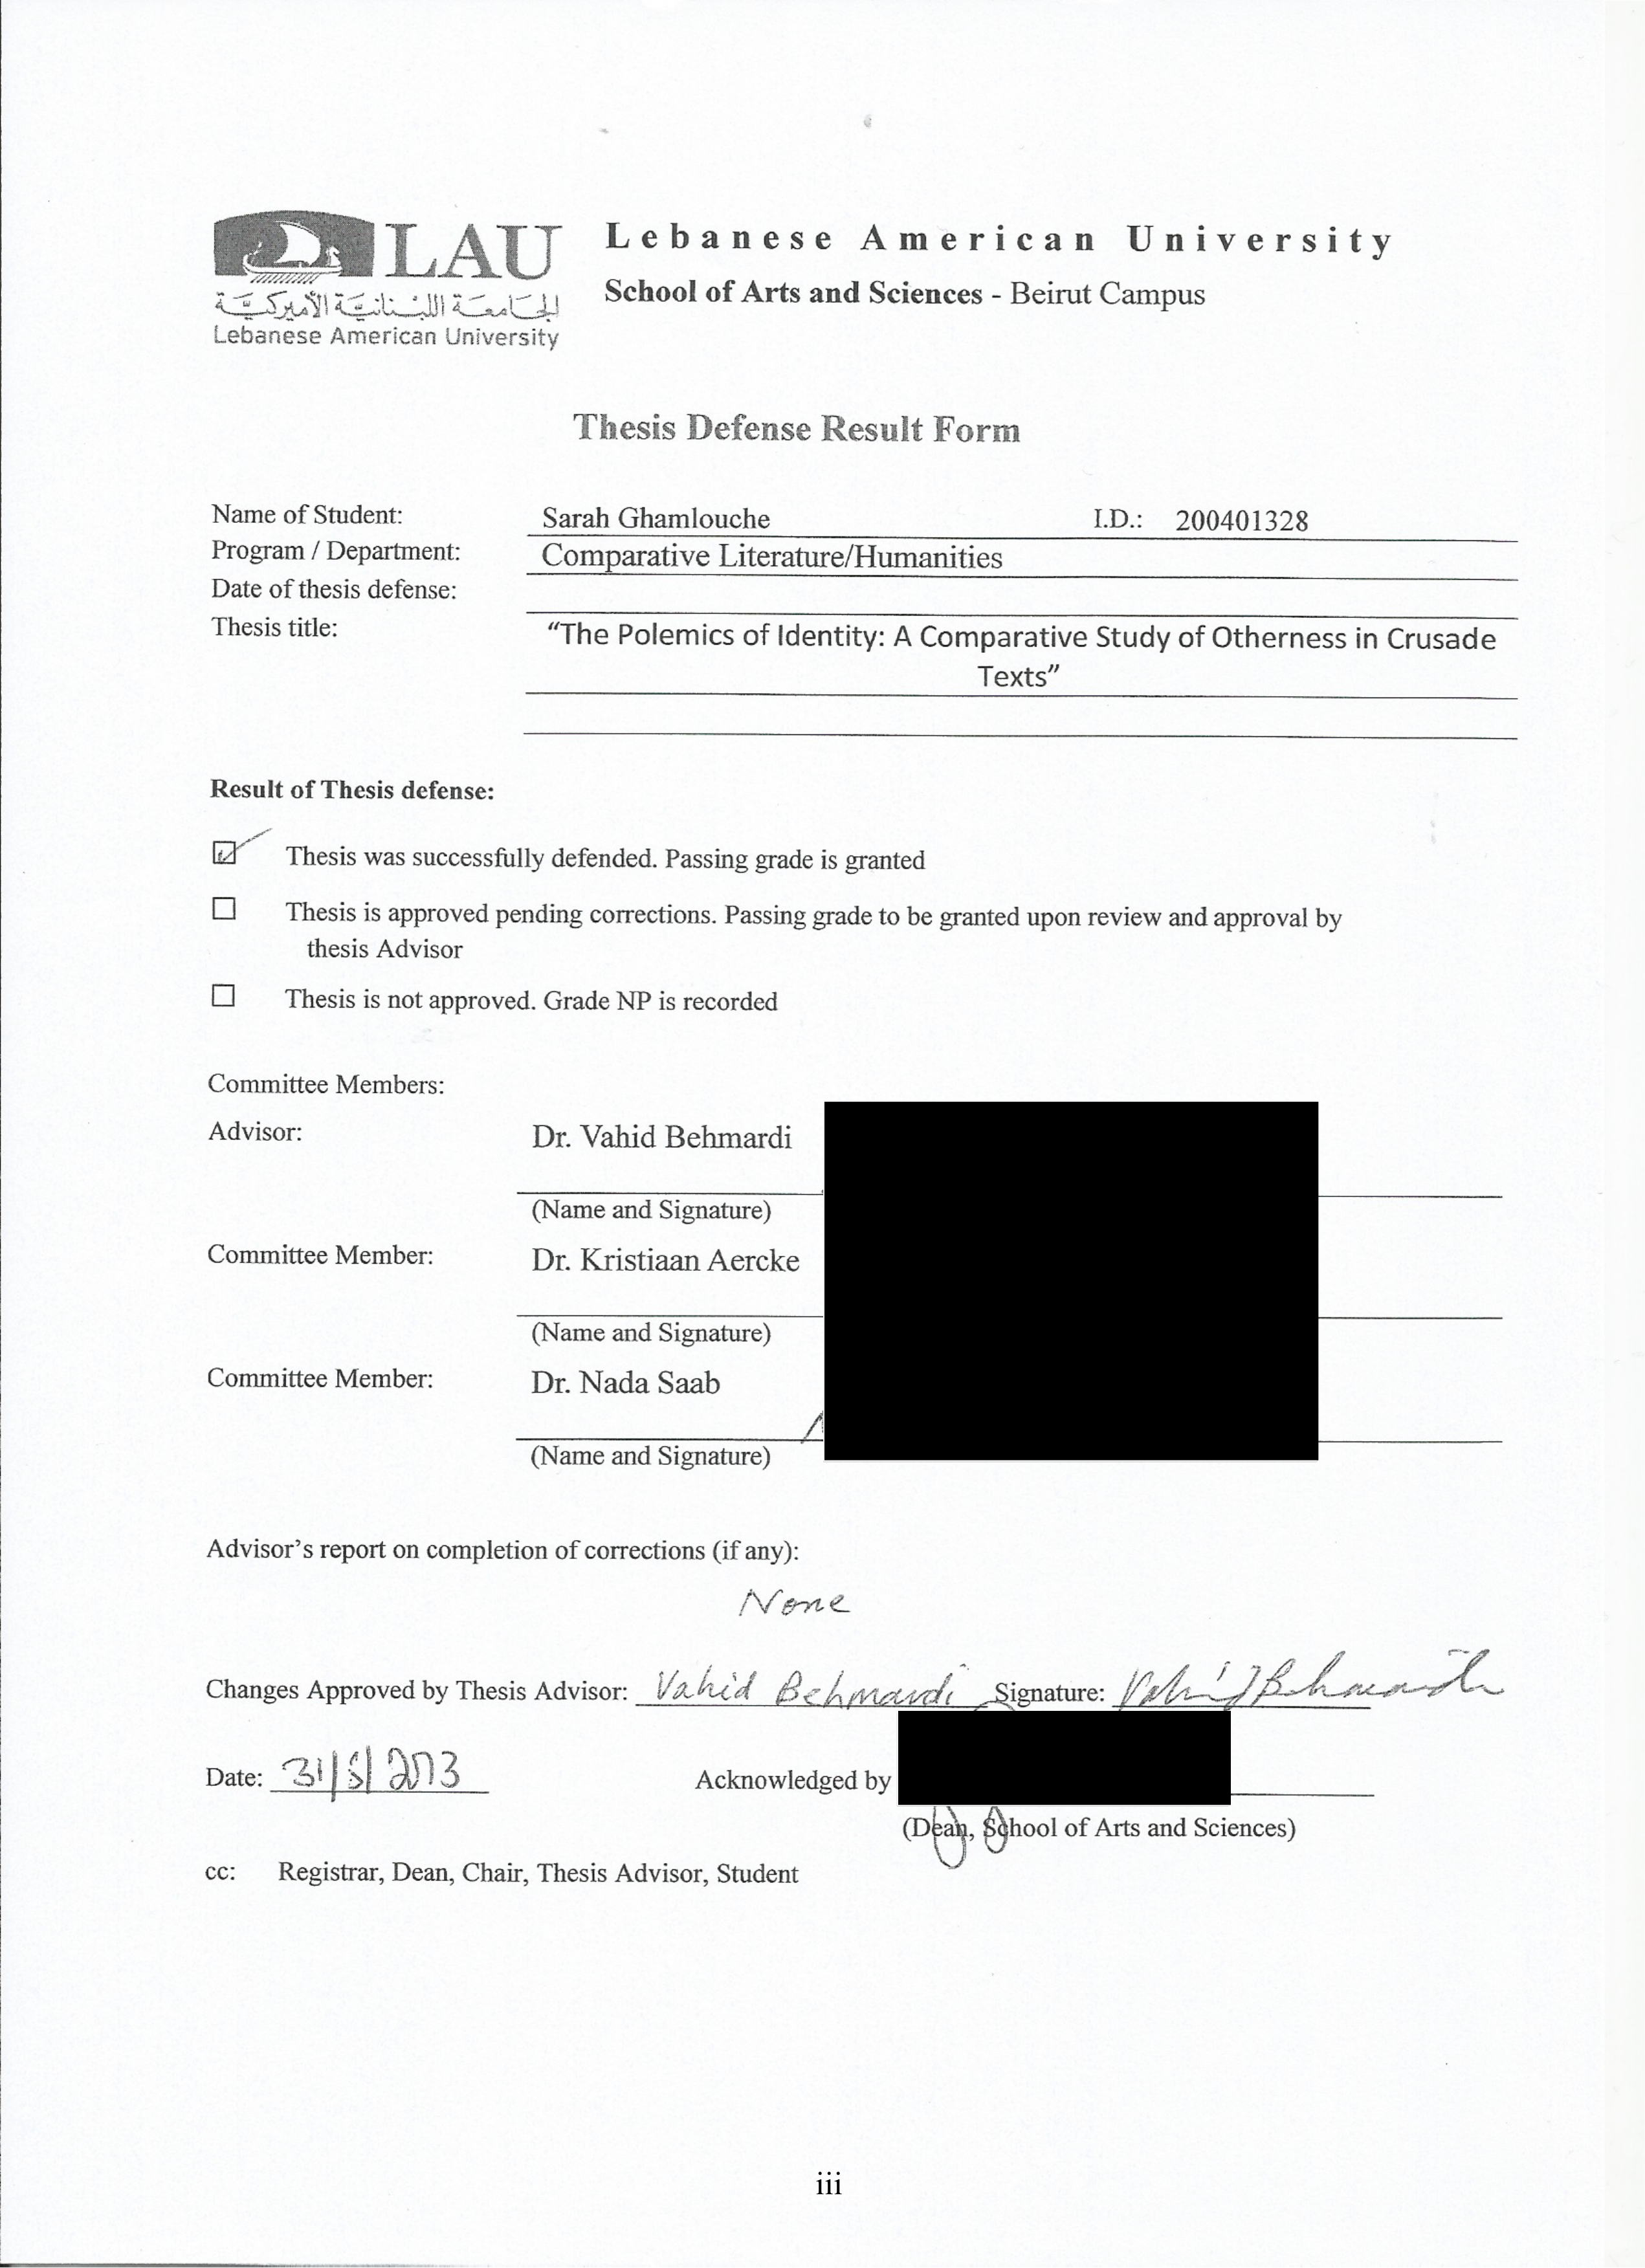 LAU
الجامعة اللبنانية الأميركية
Lebanese American University
Lebanese American University
School of Arts and Sciences - Beirut Campus
Thesis Defense Result Form
Name of Student: Sarah Ghamlouche I.D.: 200401328
Program / Department: Comparative Literature/Humanities
Date of thesis defense:
Thesis title: “The Polemics of Identity: A Comparative Study of Otherness in Crusade
Texts”
Result of Thesis defense:
Thesis was successfully defended. Passing grade is granted
Thesis is approved pending corrections. Passing grade to be granted upon review and approval by
thesis Advisor
Thesis is not approved. Grade NP is recorded
Committee Members:
Advisor: Dr. Vahid Behmardi
(Name and Signature)
Committee Member: Dr. Kristiaan Aercke
(Name and Signature)
Committee Member: Dr. Nada Saab
(Name and Signature)
Advisor’s report on completion of corrections (if any):
None
Changes Approved by Thesis Advisor: Vahid Behmardi Signature: Vahid Behmardi
Date: 31/5/2013 Acknowledged by
(Dean, School of Arts and Sciences)
cc: Registrar, Dean, Chair, Thesis Advisor, Student
iii